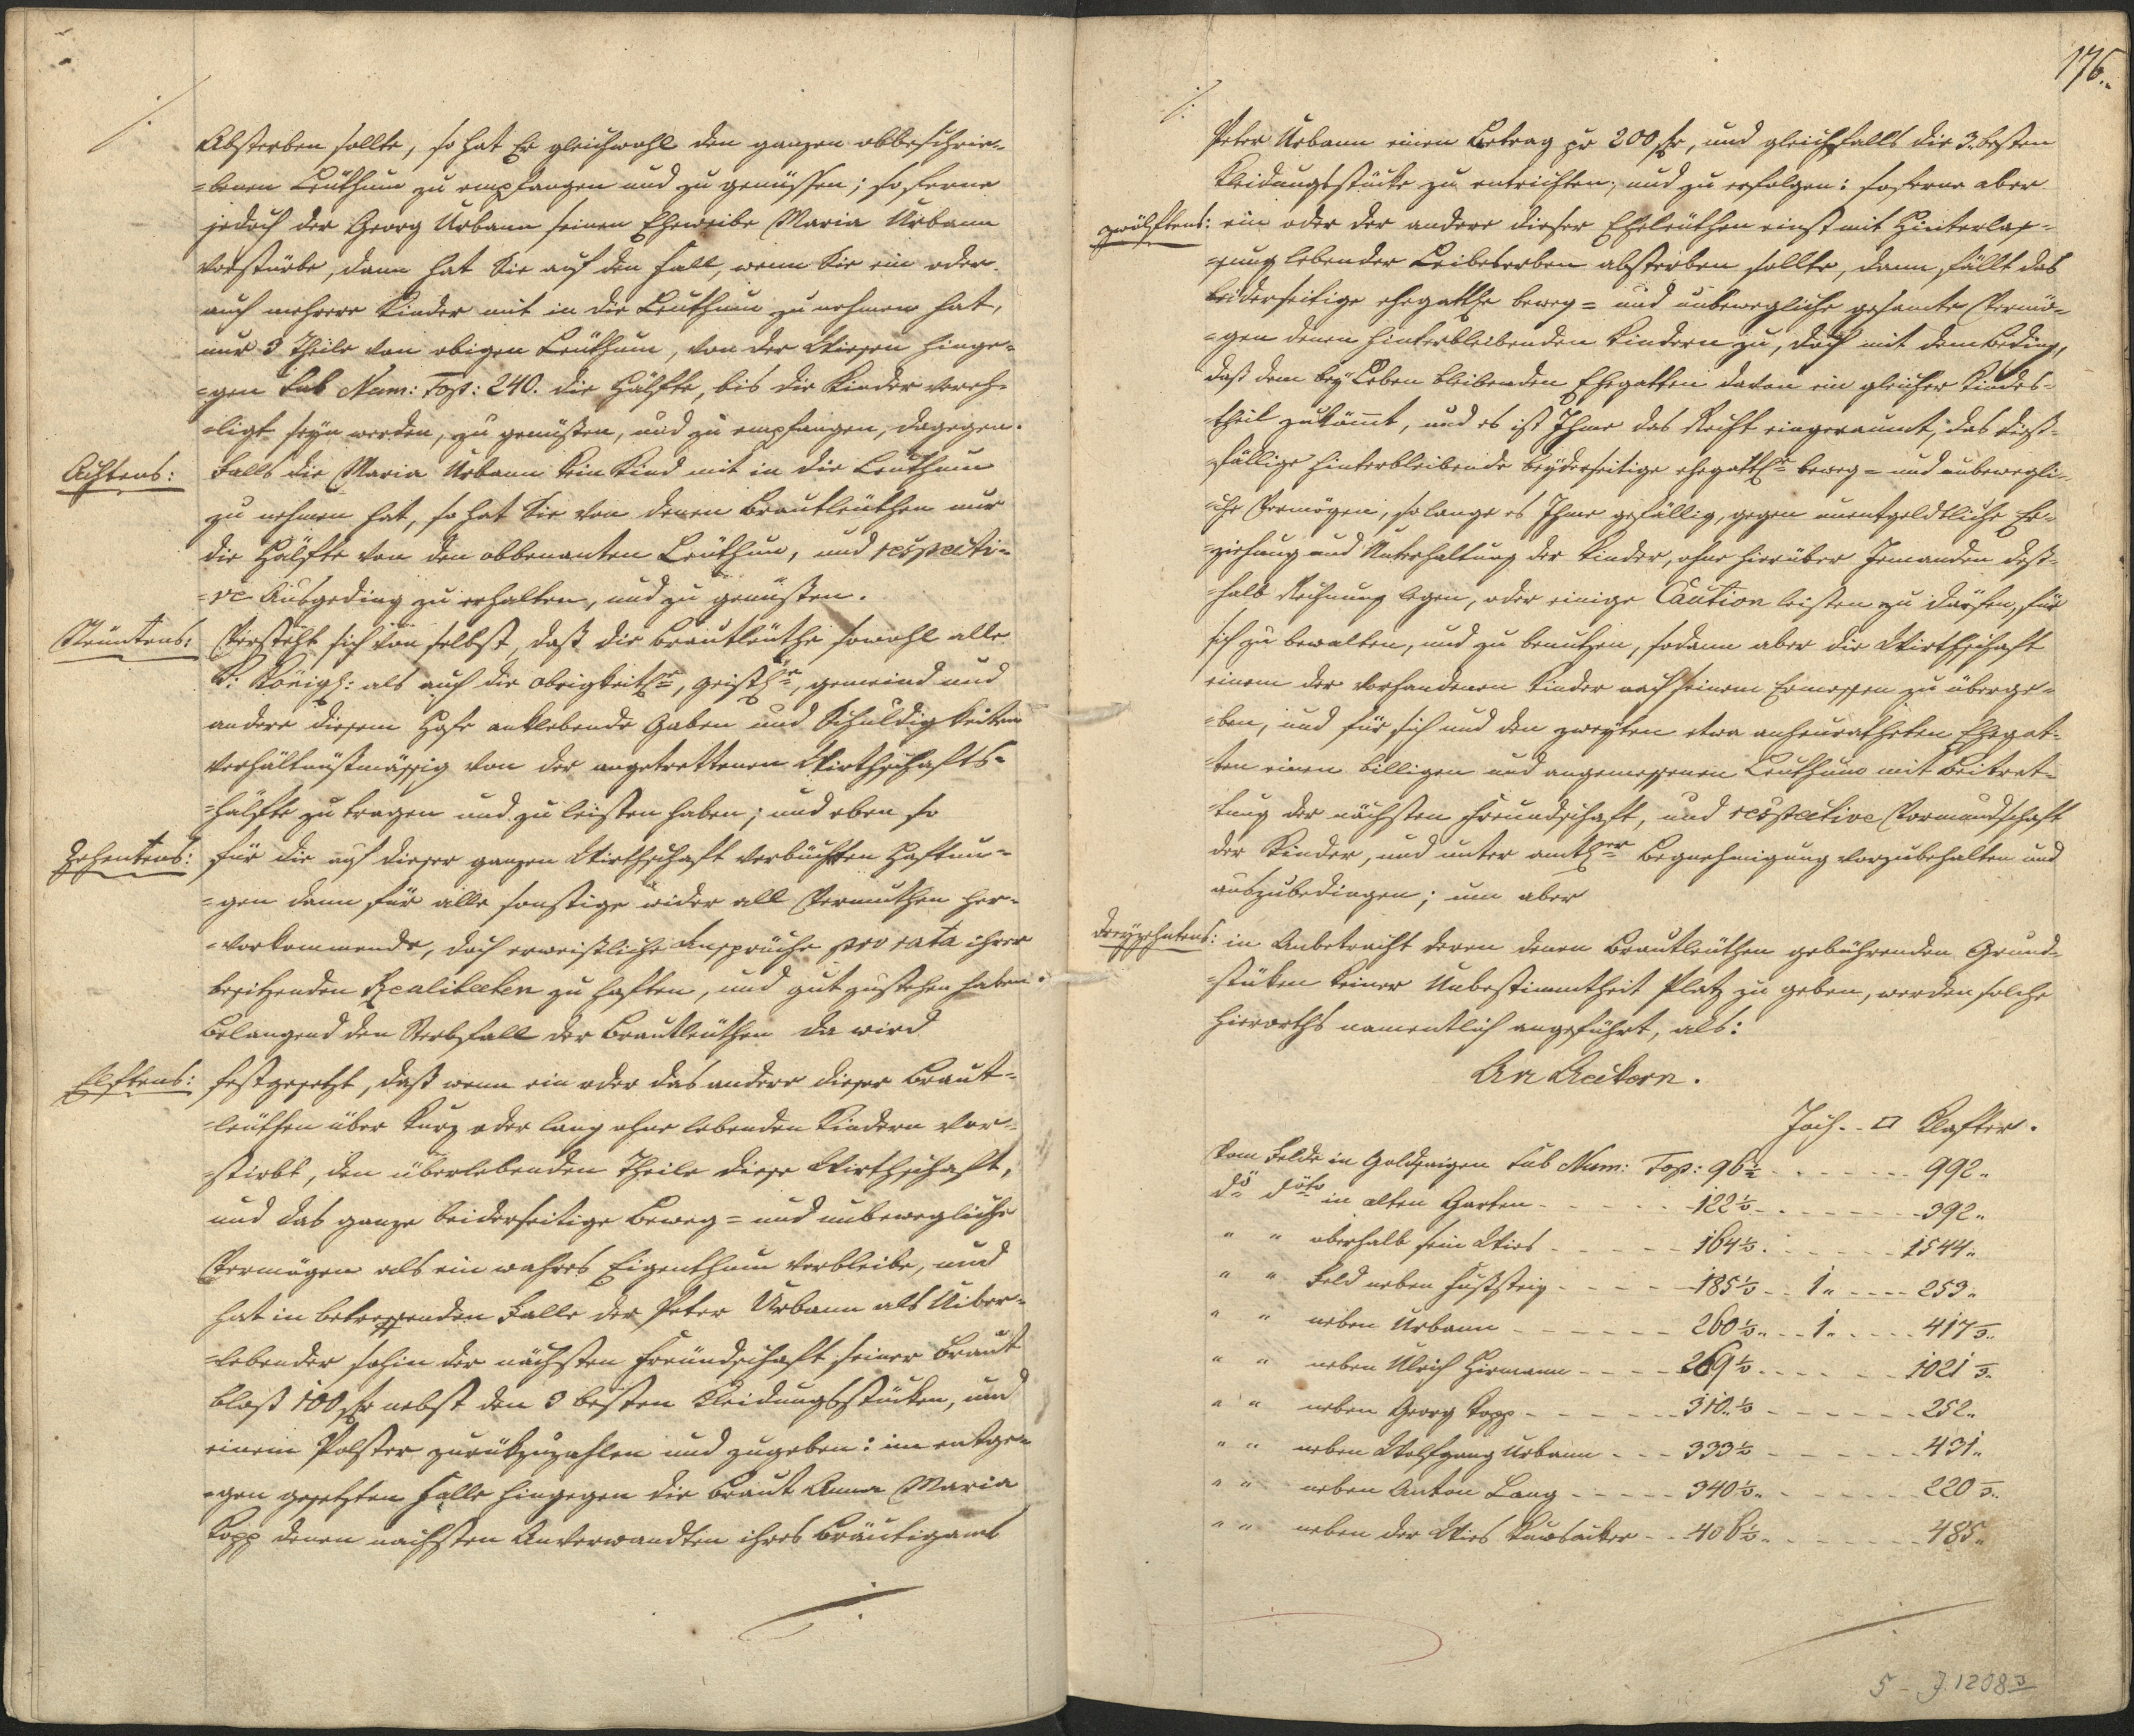 Absterben sollte, so hat Er gleichwohl den ganzen obbeschrie-
=benen Leuthum zu empfangen und zu genüssen; so ferne
jedoch der Georg Urbann seinen Eheweibe Maria Urbann
vorstürbe, dann hat Sie auf den Fall, wenn Sie ein oder
auch mehrere Kinder mit in die Leuthum zu nehmen hat,
nur 3 Theile von obigen Leuthum, von der Wiesen hinge-
=gen sub Num: Top: 240. die Hälfte, bis die Kinder vereh-
=ligt seyn werden, zu genüssen, und zu empfangen, dagegen
Achtens: Falls die Maria Urbann kein Kind mit in die Leuthum
zu nehmen hat, so hat Sie von denen Brautleuthen nur
die Hälfte von den obbenanten Leuthum, und respecti-
=ve Ausgeding zu erhalten, und zu genüssen.
Neuntens: Versteht sich von selbst, daß die Brautleuthe sowohl alle
K: Königl: als auch die obrigkeitl., geistl., gemeind und
andere diesem Hofe anklebende Gaben und Schuldigkeiten
verhältnüßmässig von der angetrettenen Wirthschafts-
=hälfte zu tragen und zu leisten haben; und eben so
Zehentens: für die auf dieser ganzen Wirthschaft verbüchten Haftun-
=gen dann für alle sonstige wider all Vermuthen her-
=vorkommende, doch erweißliche Ansprüche pro rata ihrer
besitzenden Realitaeten zu haften, und gut zustehen haben.
Belangend den Sterbfall der Brautleuthen da wird
Elftens: festgesetzt, daß wenn ein oder das andere dieser Braut-
=leuthen über kurz oder lang ohne lebenden Kindern ver-
=stirbt, den überlebenden Theile diese Wirthschaft,
und das ganze beiderseitige Beweg= und unbewegliche
Vermögen als ein wahres Eigenthum verbleibe, und
hat in betreffenden Falle der Peter Urbann als Uiber-
=lebender sohin der nächsten Freundschaft seiner Braut
bloß 100 fr nebst den 3 besten Kleidungsstücken, und
einem Polster zurükzuzahlen und zugeben: im entge-
=gen gesetzten Falle hingegen die Braut Anna Maria
Kopp denen nächsten Anverwandten ihres Bräutigams
176.
Peter Urbann einen Betrag pr 200 fr, und gleichfalls die 3 besten
Kleidungsstücke zu entrichten, und zu erfolgen: soferne aber
zwölftens: ein oder der andere dieser Eheleuthen einst mit Hinterlas-
=sung lebender Leibeserben absterben sollte, dann fällt das
beiderseitige ehegattl. beweg= und unbewegliche gesamte Vermö-
=gen denen hinterbleibenden Kindern zu, doch mit dem Beding,
daß dem bey Leben bleibenden Ehegatten davon ein gleicher Kindes-
theil zukömmt, und es ist Ihme das Recht eingeraumt, das dieß-
fällige hinterbleibende beyderseitige ehegattl. beweg= und unbewegli-
=che Vermögen, solange es Ihme gefällig, gegen unentgeldtliche Er-
=ziehung und Unterhaltung der Kinder, ohne hierüber Jemanden deß-
halb Rechnung legen, oder einige Caution leisten zu dürfen, für
sich zu bewalten, und zu benutzen, sodann aber die Wirthschaft
einem der vorhandenen Kinder nach seinem Ermessen zu überge-
=ben, und für sich und den zweyten etwa anheuratheten Ehegat-
ten einen billigen und angemessenen Leuthum mit Beitret-
tung der nächsten Freundschaft, und respective Vormundschaft
der Kinder, und unter amtl. Begnehmigung vorzubehalten und
auszubedingen; um aber
dreyzehntens: in Anbetracht deren denen Brautleuthen gebührenden Grund-
=stüken keiner Unbestimmtheit Platz zu geben, werden solche
hierorths namentlich angeführt, als:
An Aeckern.
Joch. - □ Klafter.
Vom Felde in Goldsaigen sub Num: Top: 96½ - - - 992.
do dito in alten Garten - - - 122½ - - - 392.
" " oberhalb sein Wies - - - 164½ - - - 1544.
" " Feld neben Fußsteig - - - 185½ - - 1. - - - 253.
" " neben Urbann - - - 260½ - - 1. - - - 417
" " neben Ulrich Hirmann - - - 269½ - - - 1021
" " neben Georg Kopp - - - 310½ - - - 252.
" " neben Wolfgang Urbann - - - 333½ - - - 431.
" " neben Anton Lang - - - 340½ - - - 220
" " neben der Wies - - 406½ - - - 485.
5 - J. 1208